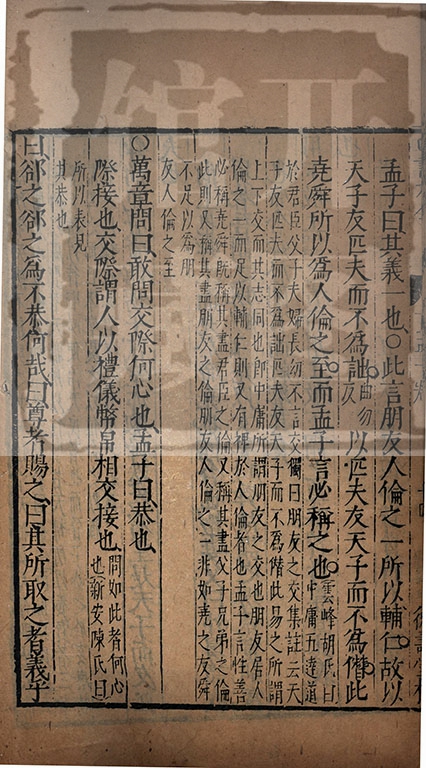 孟子曰其義一也○此言朋友人倫之一所以輔仁故以
天子友匹夫而不爲詘曲勿反以匹夫友天子而不爲僭此
堯舜所以爲人倫之至而孟子言必稱之也雲峰胡氏曰中庸五達道
於君臣父子夫婦長幼不言交獨曰朋友之交集註云天
子友匹夫而不爲詘匹夫友天子而不爲僭此易之所謂
上下交而其志同也即中庸所謂朋友之交也朋友居人
倫之一而足以輔仁則又有得於人倫者也孟子言性善
必稱堯舜既稱其盡君臣之倫又稱其盡父子兄弟之倫
此則又稱其盡朋友之倫朋友人倫之一非如堯之友舜
不足以爲朋
友人倫之至
○萬章問曰敢問交際何心也孟子曰恭也
際接也交際謂人以禮儀幣帛相交接也問如此者何心也新安陳氏曰
所以表見
其恭也
曰郤之郤之爲不恭何哉曰尊者賜之曰其所取之者義乎